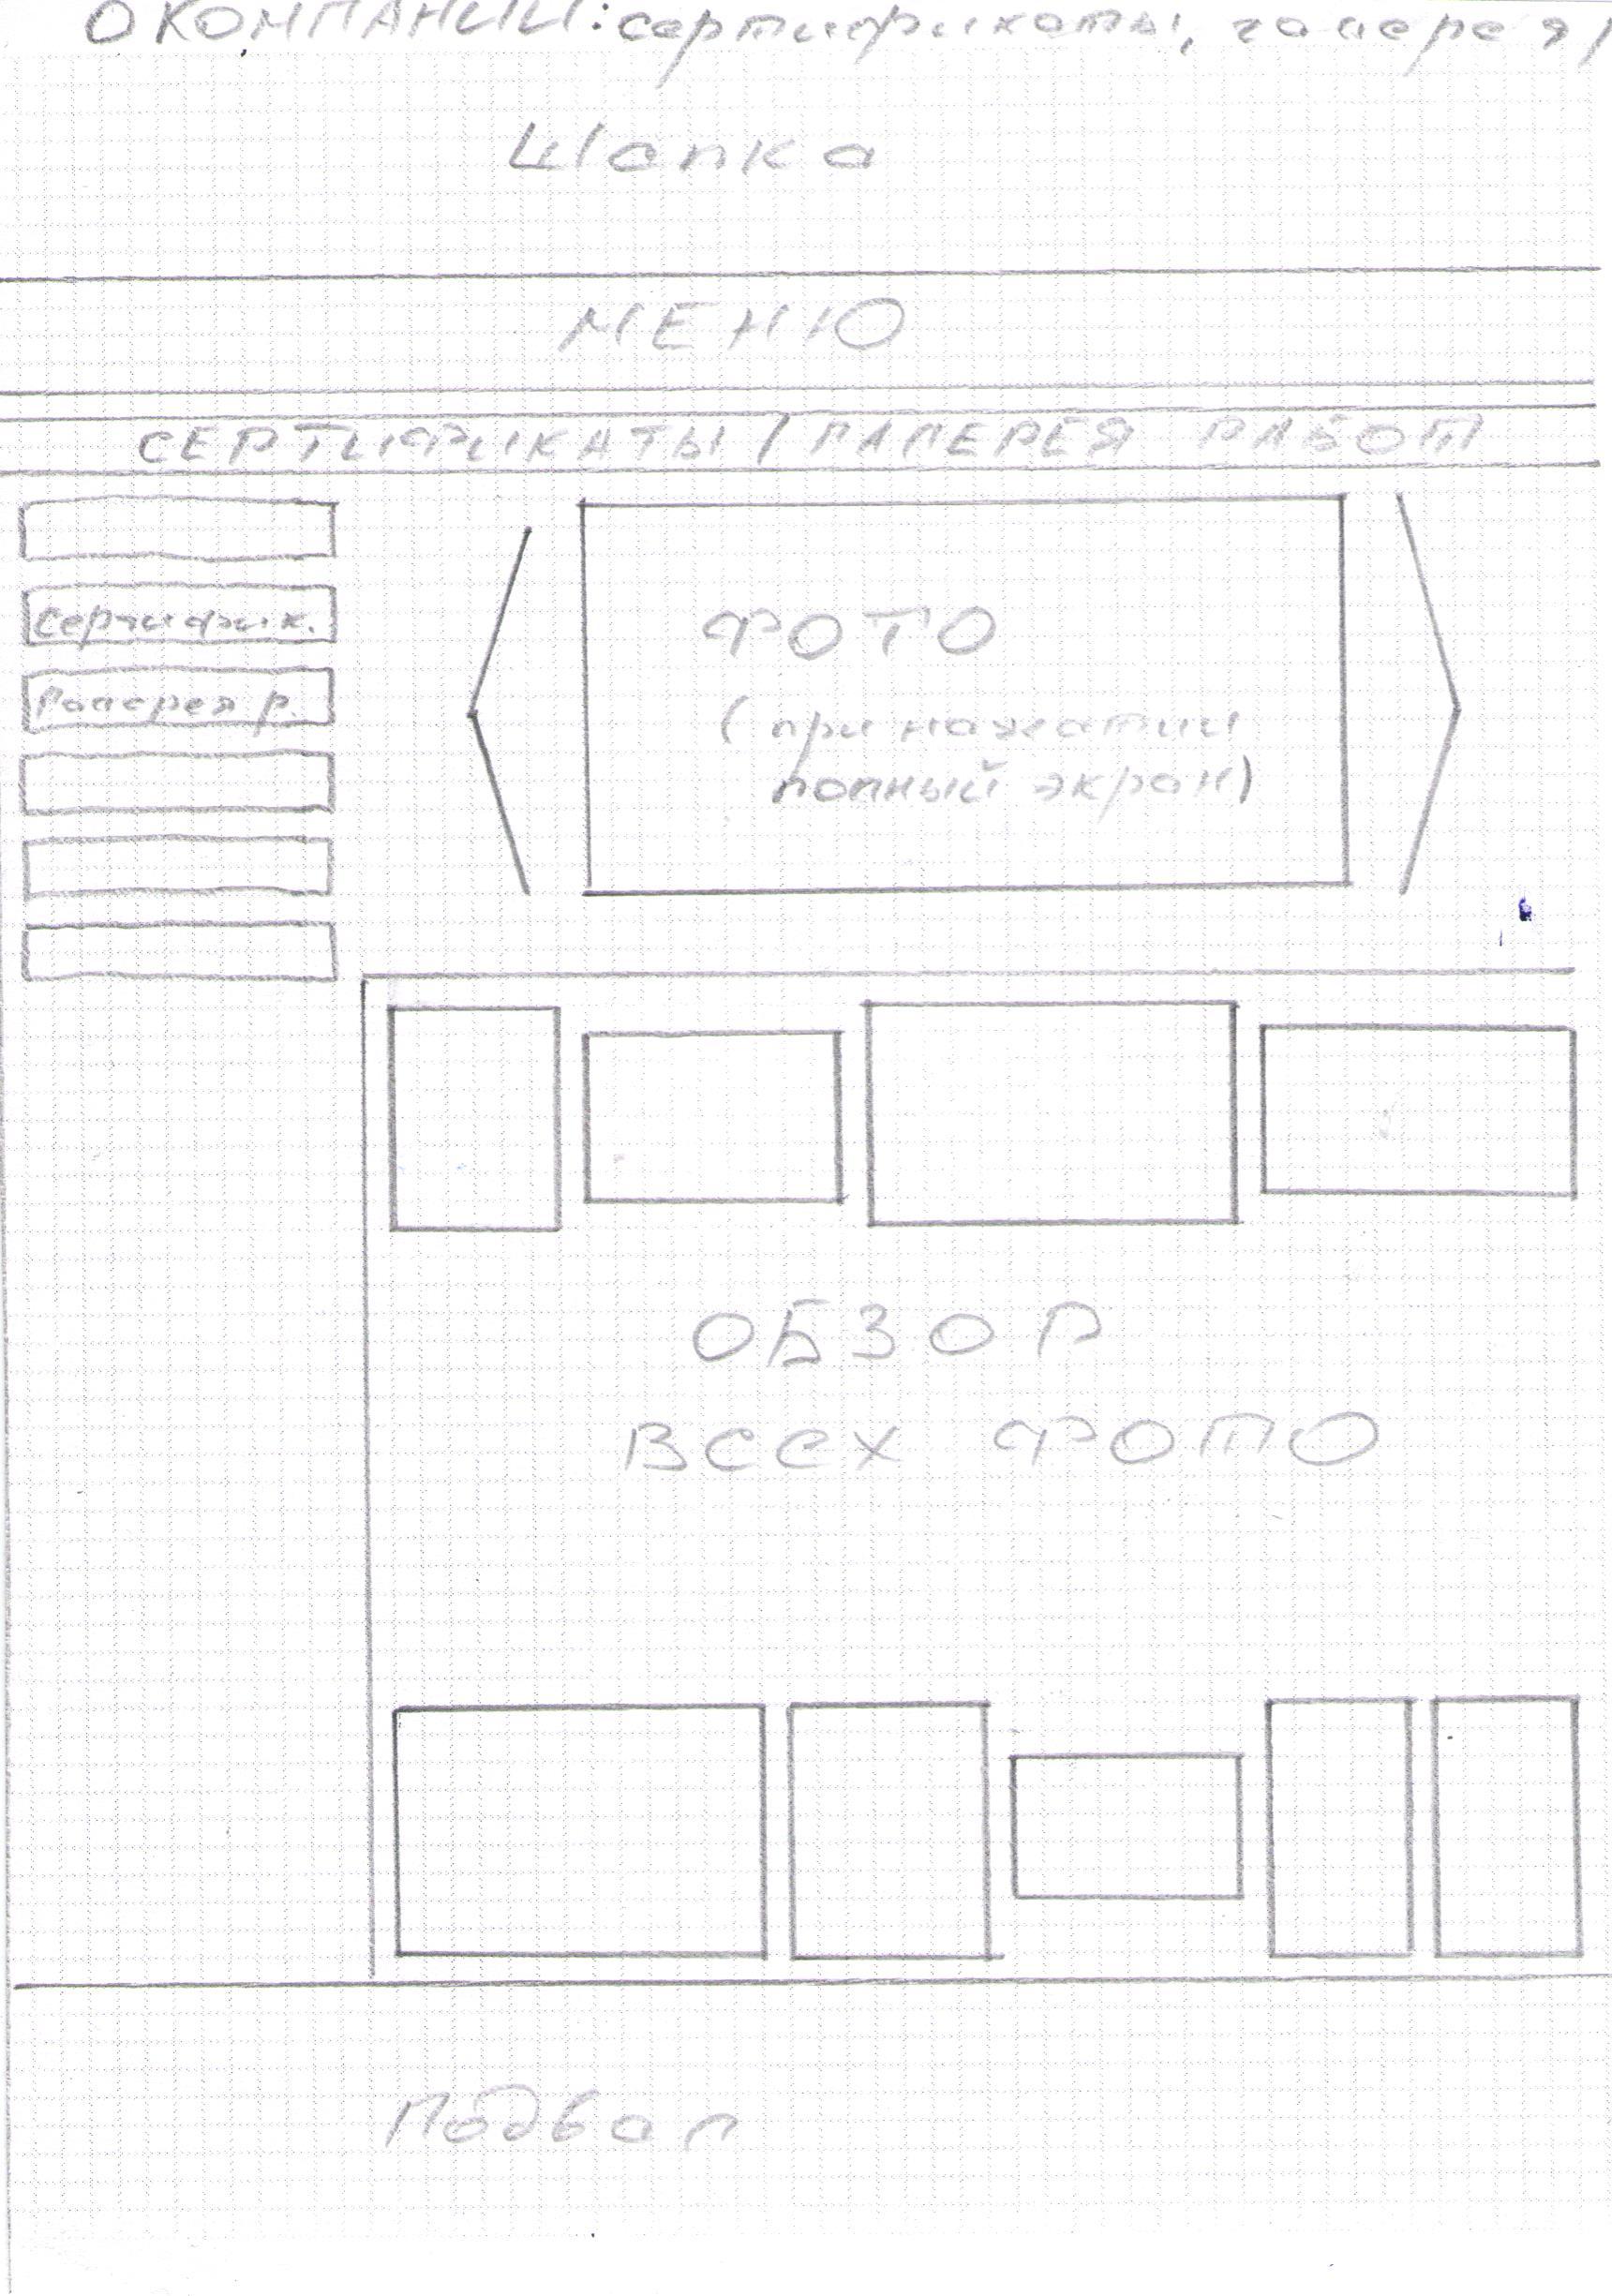 О КОМПАНИИ: сертификаты, галерея
Шапка
МЕНЮ
СЕРТИФИКАТЫ / ГАЛЕРЕЯ РАБОТ
Сертифик.
Галерея р.
ФОТО
(при нажатии
полный экран)
ОБЗОР
ВСЕХ ФОТО
Подвал